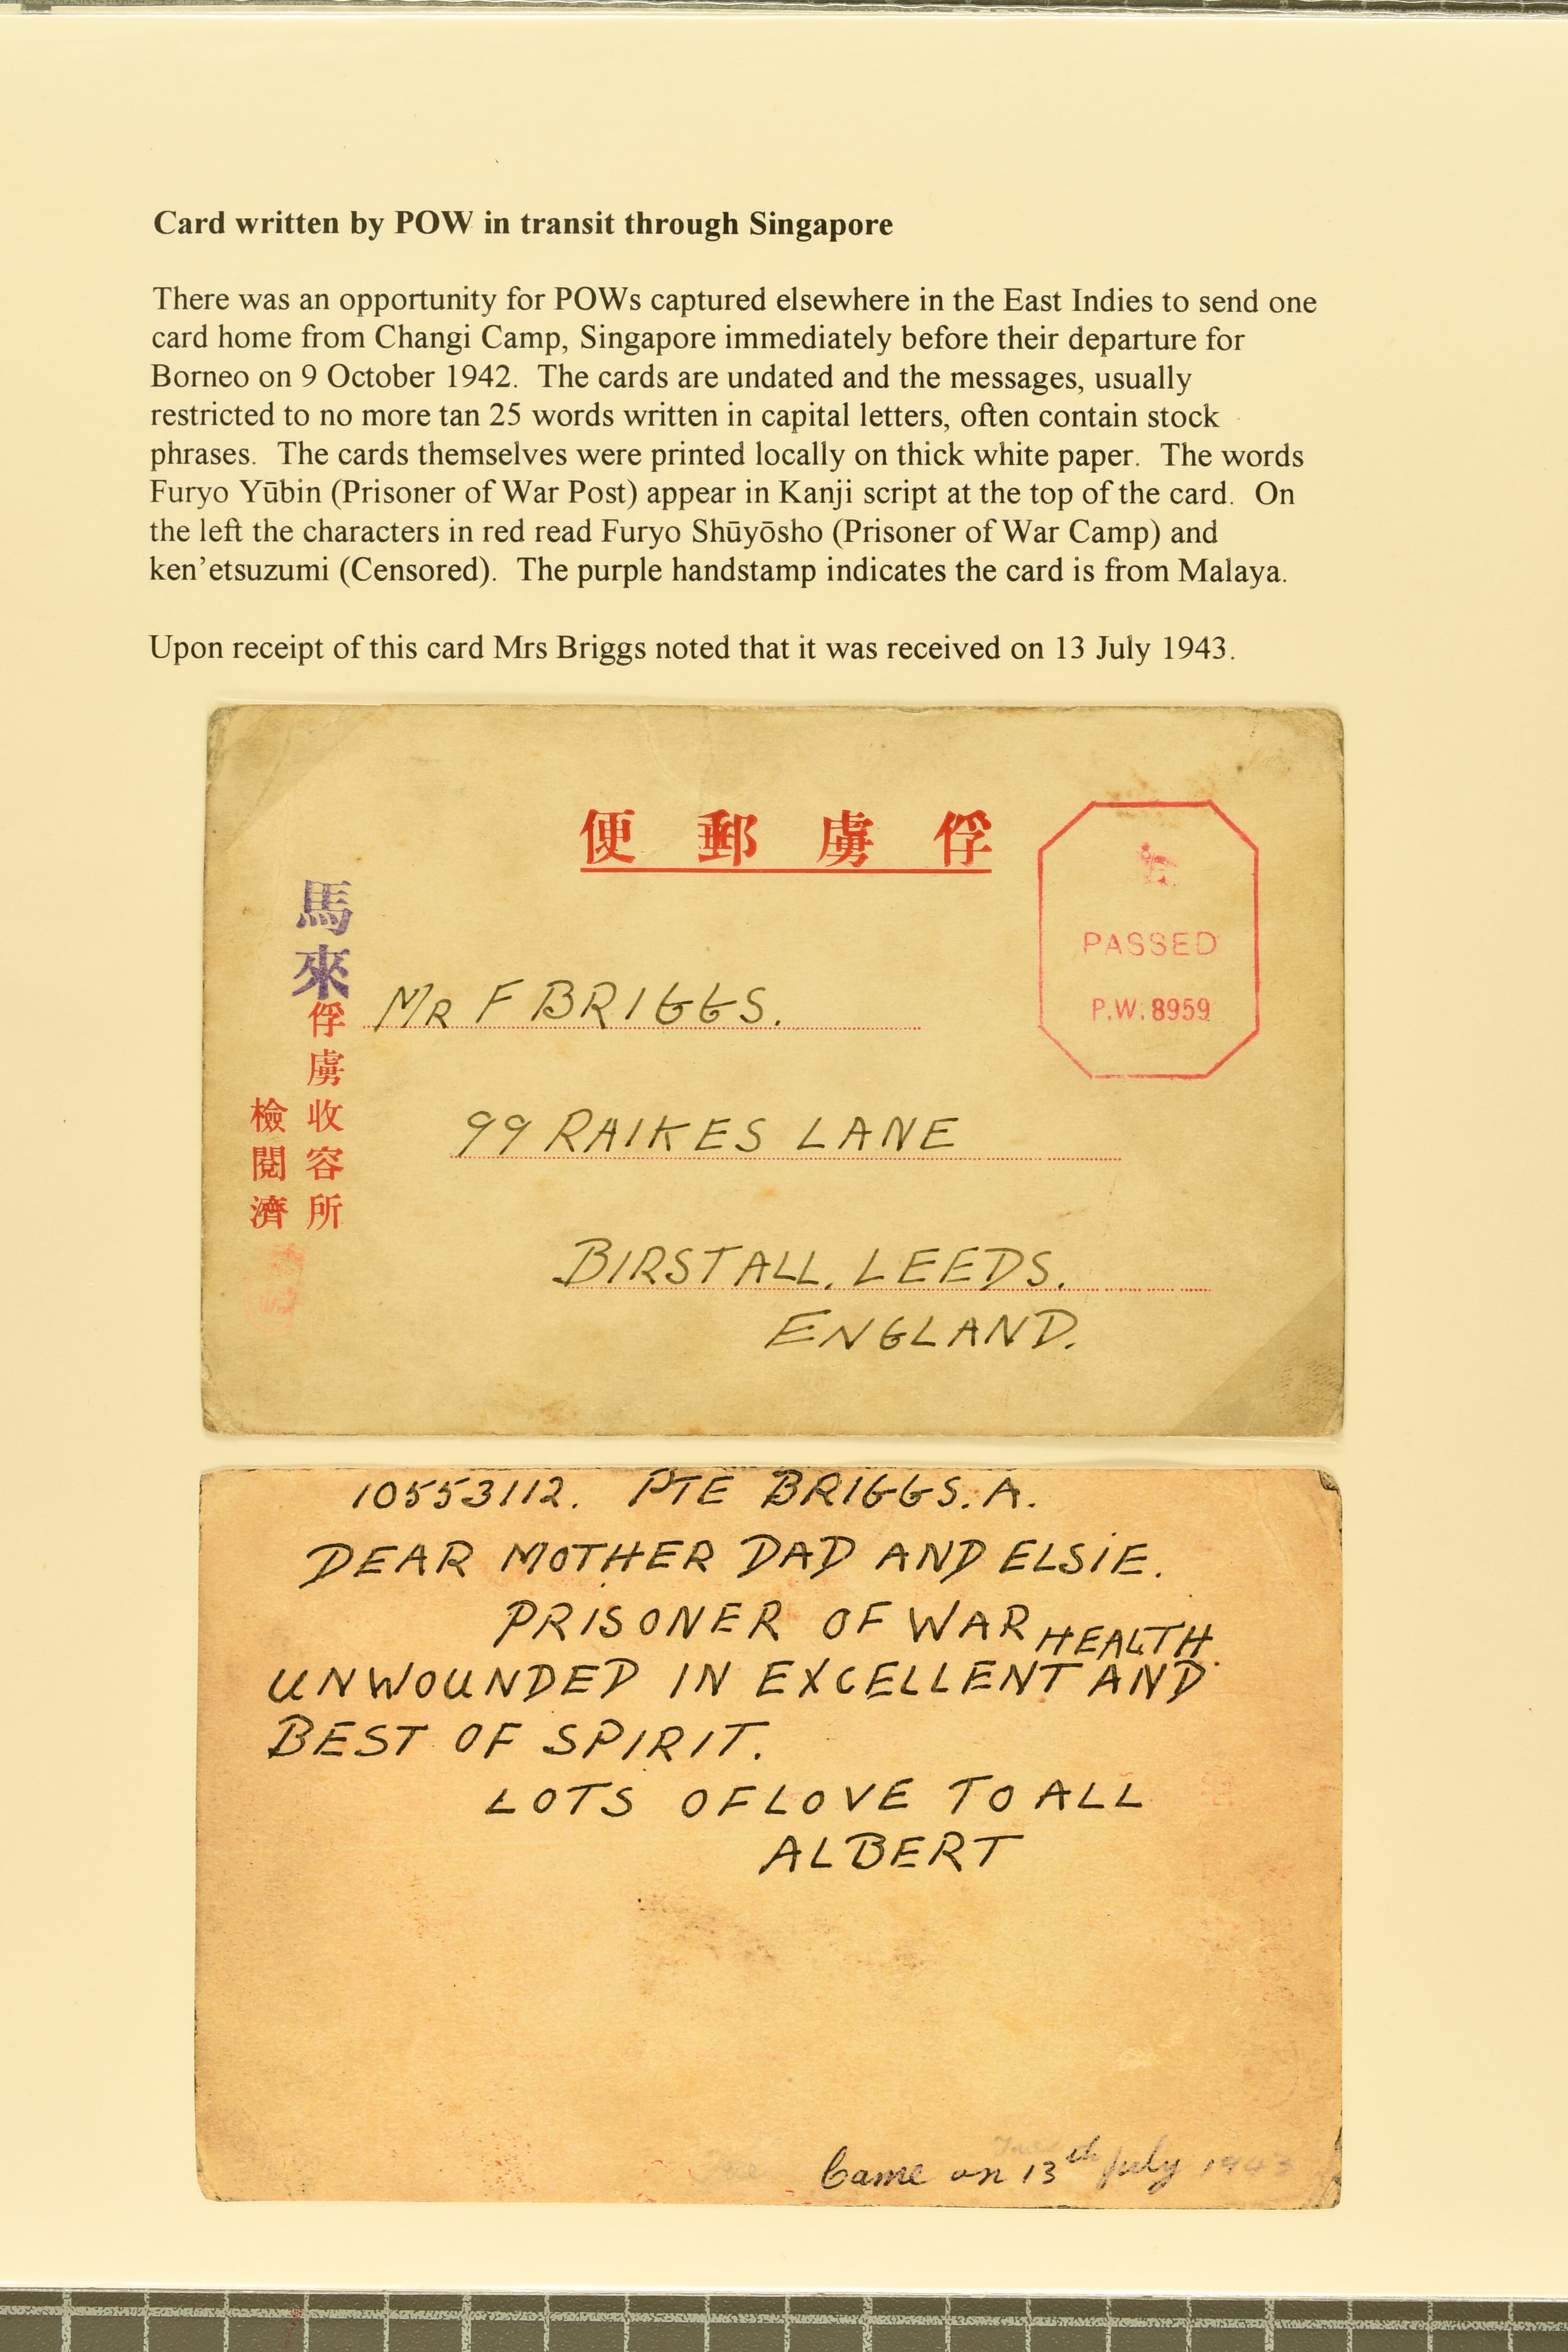 Card written by POW in transit through Singapore
There was an opportunity for POWs captured elsewhere in the East Indies to send one
card home from Changi Camp, Singapore immediately before their departure for
Borneo on 9 October 1942.  The cards are undated and the messages, usually
restricted to no more tan 25 words written in capital letters, often contain stock
phrases.  The cards themselves were printed locally on thick white paper.  The words
Furyo Yūbin (Prisoner of War Post) appear in Kanji script at the top of the card.  On
the left the characters in red read Furyo Shūyōsho (Prisoner of War Camp) and
ken'etsuzumi (Censored).  The purple handstamp indicates the card is from Malaya.
Upon receipt of this card Mrs Briggs noted that it was received on 13 July 1943.
便郵虜俘
PASSED
P.W. 8959
馬來
俘虜收容所
檢閱濟
MR F BRIGGS.
99 RAIKES LANE
BIRSTALL. LEEDS.
ENGLAND.
10553112. PTE BRIGGS. A.
DEAR MOTHER DAD AND ELSIE.
PRISONER OF WAR HEALTH.
UNWOUNDED IN EXCELLENT AND
BEST OF SPIRIT.
LOTS OF LOVE TO ALL
ALBERT
Came on 13th July 1943